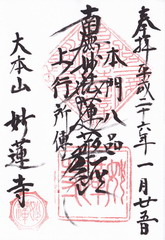 奉拝 平成二十六年一月廿五日
本門八品
上行所傳
南無妙法蓮華経
大本山 妙蓮寺